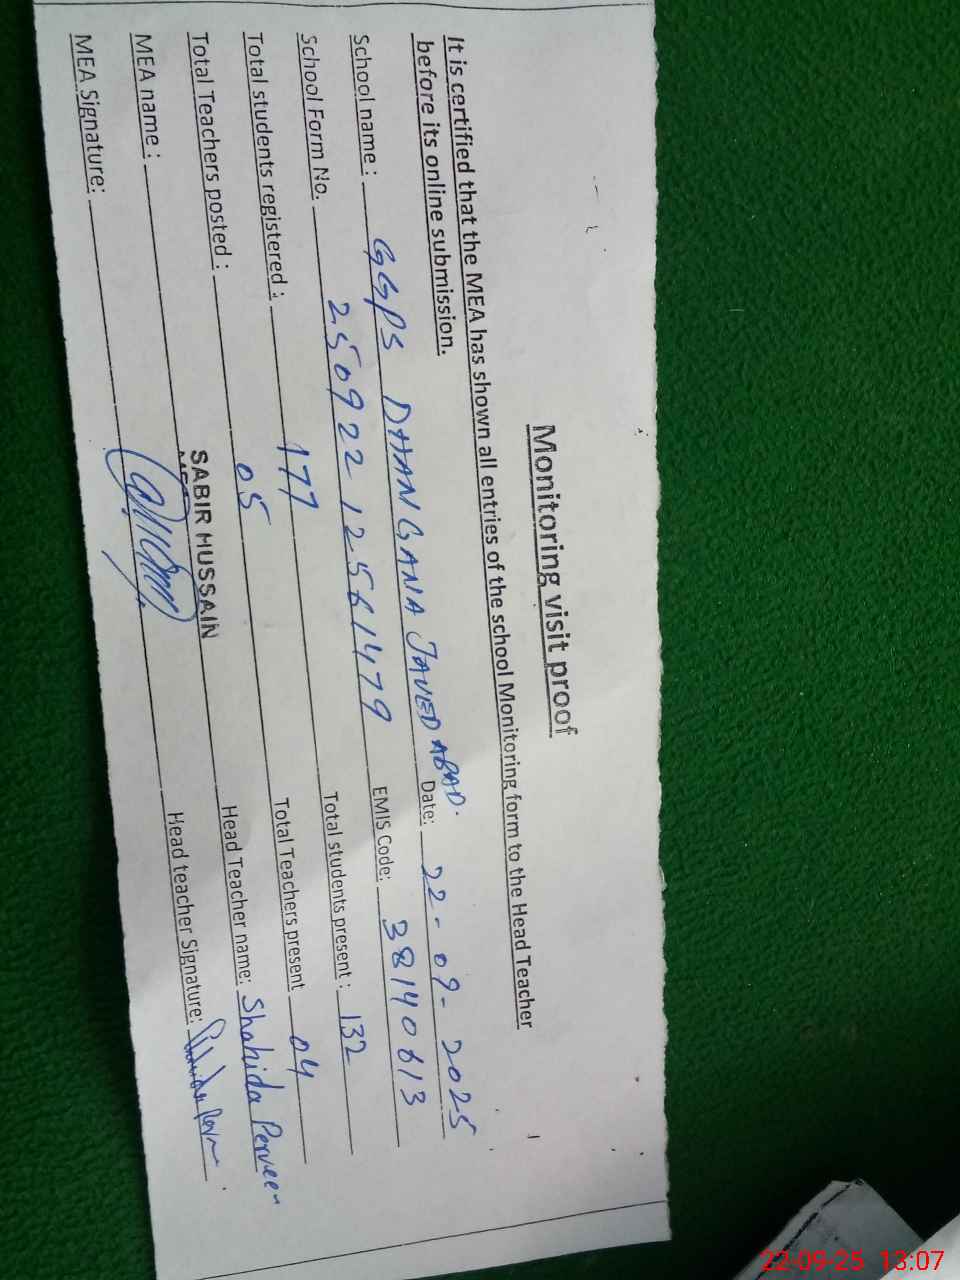 Monitoring visit proof
It is certified that the MEA has shown all entries of the school Monitoring form to the Head Teacher
before its online submission.
School name : GGPS DHANGANA JAVED ABAD. Date: 22-09-2025
School Form No. 250922 12561479 EMIS Code: 38140613
Total students registered : 177 Total students present : 132
Total Teachers posted : 05 Total Teachers present 04
MEA name : SABIR HUSSAIN Head Teacher name: Shahida Perveen
MEA Signature: Head teacher Signature:
22-09-25 13:07